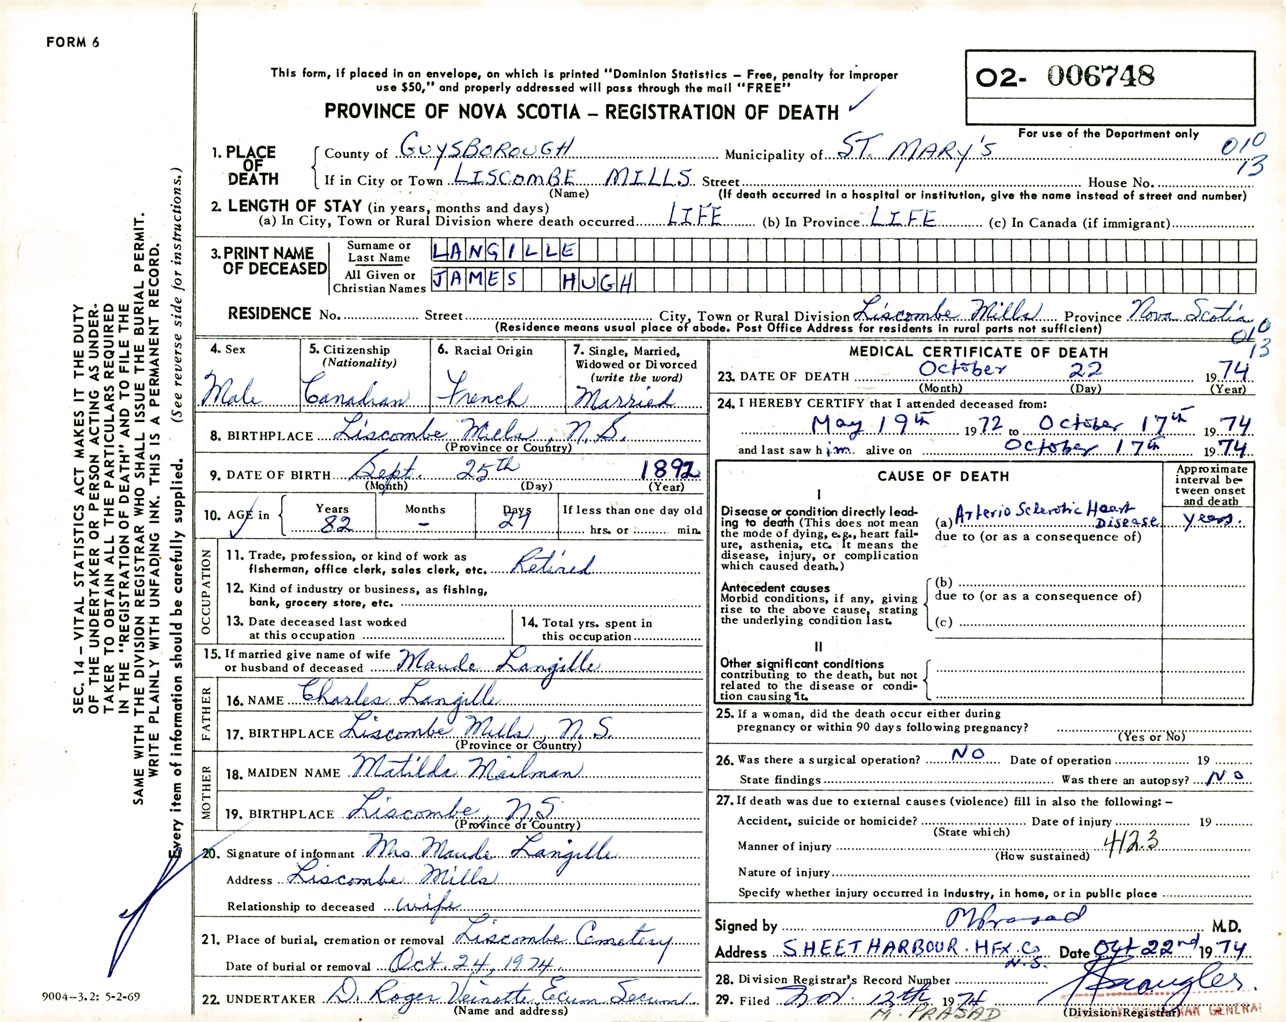 FORM 6
This form, if placed in an envelope, on which is printed "Dominion Statistics — Free, penalty for improper
use $50," and properly addressed will pass through the mail "FREE"
PROVINCE OF NOVA SCOTIA — REGISTRATION OF DEATH ✓
O2- 006748
For use of the Department only
010
13
1. PLACE OF DEATH
County of GUYSBOROUGH Municipality of ST. MARY'S
If in City or Town LISCOMBE MILLS Street House No.
(Name) (If death occurred in a hospital or institution, give the name instead of street and number)
2. LENGTH OF STAY (in years, months and days)
(a) In City, Town or Rural Division where death occurred LIFE (b) In Province LIFE (c) In Canada (if immigrant)
3. PRINT NAME OF DECEASED
Surname or Last Name LANGILLE
All Given or Christian Names JAMES HUGH
RESIDENCE No. Street City, Town or Rural Division Liscombe Mills Province Nova Scotia
(Residence means usual place of abode. Post Office Address for residents in rural parts not sufficient)
010
13
4. Sex Male
5. Citizenship (Nationality) Canadian
6. Racial Origin French
7. Single, Married, Widowed or Divorced (write the word) Married
8. BIRTHPLACE Liscombe Mills, N.S.
(Province or Country)
9. DATE OF BIRTH Sept. 25th 1892
(Month) (Day) (Year)
10. AGE in Years 82 Months - Days 27 If less than one day old
hrs. or min.
OCCUPATION
11. Trade, profession, or kind of work as
fisherman, office clerk, sales clerk, etc. Retired
12. Kind of industry or business, as fishing,
bank, grocery store, etc.
13. Date deceased last worked
at this occupation
14. Total yrs. spent in
this occupation
15. If married give name of wife
or husband of deceased Maude Langille
FATHER
16. NAME Charles Langille
17. BIRTHPLACE Liscombe Mills, N.S.
(Province or Country)
MOTHER
18. MAIDEN NAME Matilda Mailman
19. BIRTHPLACE Liscombe, N.S.
(Province or Country)
20. Signature of informant Mrs Maude Langille
Address Liscombe Mills
Relationship to deceased wife
21. Place of burial, cremation or removal Liscombe Cemetery
Date of burial or removal Oct. 24, 1974
22. UNDERTAKER D. Roger Veinotte Ecum Secum
(Name and address)
MEDICAL CERTIFICATE OF DEATH
23. DATE OF DEATH October 22 1974
(Month) (Day) (Year)
24. I HEREBY CERTIFY that I attended deceased from:
May 19th 1972 to October 17th 1974
and last saw him alive on October 17th 1974
CAUSE OF DEATH
Approximate interval between onset and death
I
Disease or condition directly leading to death (This does not mean the mode of dying, e.g., heart failure, asthenia, etc. It means the disease, injury, or complication which caused death.)
(a) Arterio Sclerotic Heart Disease years.
due to (or as a consequence of)
Antecedent causes
Morbid conditions, if any, giving rise to the above cause, stating the underlying condition last.
(b)
due to (or as a consequence of)
(c)
II
Other significant conditions contributing to the death, but not related to the disease or condition causing it.
25. If a woman, did the death occur either during
pregnancy or within 90 days following pregnancy?
(Yes or No)
26. Was there a surgical operation? NO Date of operation 19
State findings Was there an autopsy? NO
27. If death was due to external causes (violence) fill in also the following: —
Accident, suicide or homicide? Date of injury 19
(State which)
Manner of injury 4123
(How sustained)
Nature of injury
Specify whether injury occurred in industry, in home, or in public place
Signed by M Prasad M.D.
Address SHEET HARBOUR. HFX. Co N.S. Date Oct 22nd 1974
28. Division Registrar's Record Number
29. Filed Nov. 12th 1974
M. PRASAD
(Division Registrar)
GENERAL
SEC. 14 — VITAL STATISTICS ACT MAKES IT THE DUTY
OF THE UNDERTAKER OR PERSON ACTING AS UNDER-
TAKER TO OBTAIN ALL THE PARTICULARS REQUIRED
IN THE "REGISTRATION OF DEATH" AND TO FILE THE
SAME WITH THE DIVISION REGISTRAR WHO SHALL ISSUE THE BURIAL PERMIT.
WRITE PLAINLY WITH UNFADING INK. THIS IS A PERMANENT RECORD.
Every item of information should be carefully supplied. (See reverse side for instructions.)
9004-3.2: 5-2-69